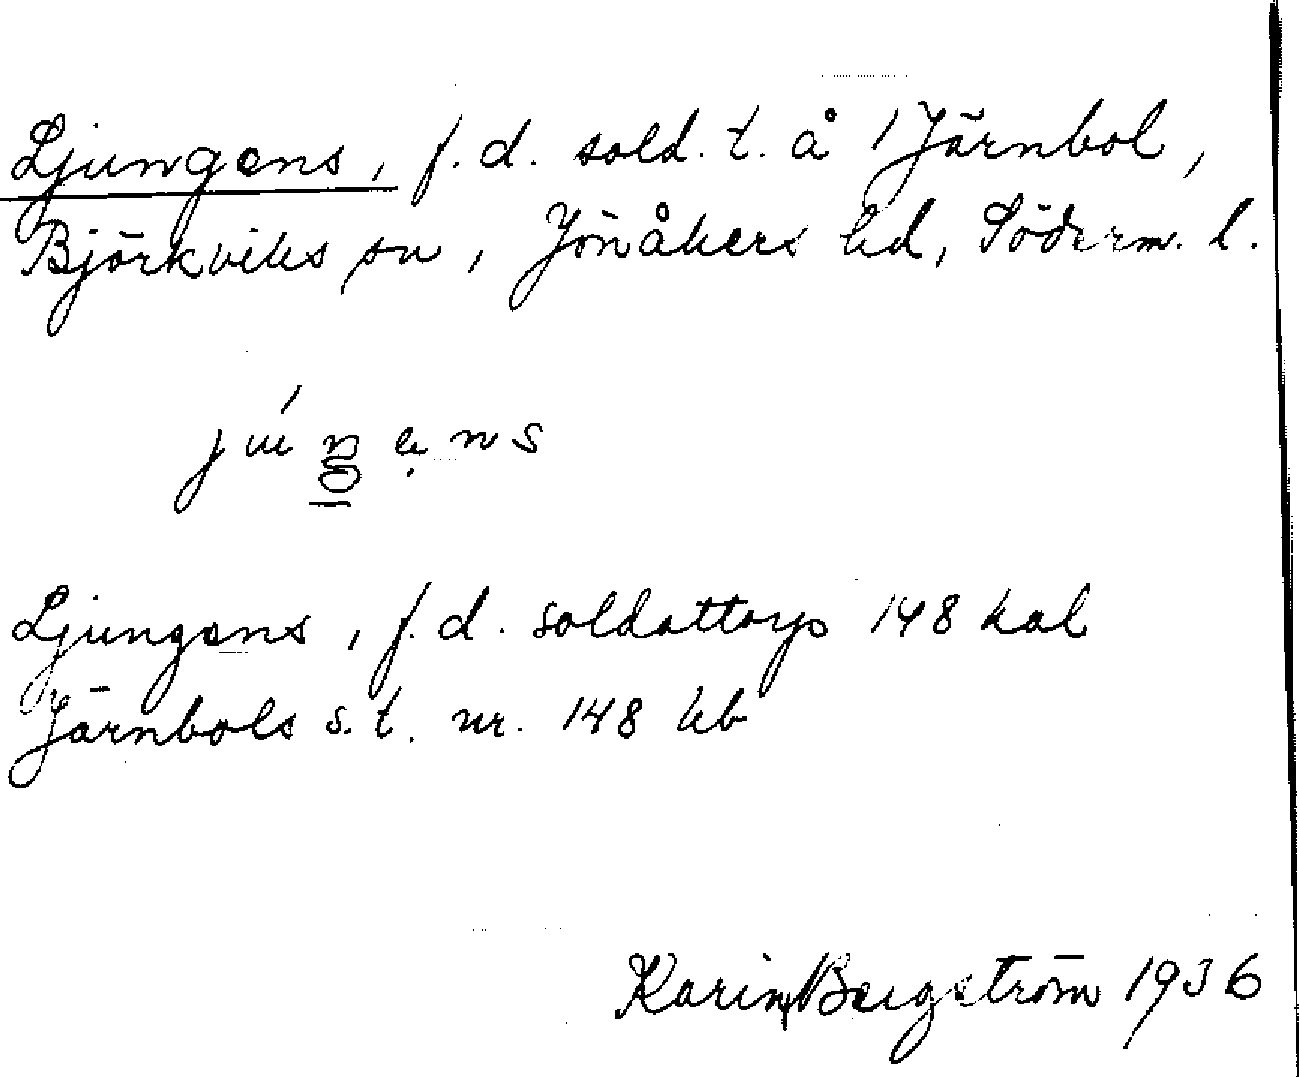 Ljungens, f.d. sold.t. å Järnbol,
Björkviks sn, Jönåkers hd, Söderm. l.
Ljungens, f.d. soldattorp 148 kal
Järnbols s.t. nr. 148 hb
Karin Bergström 1936